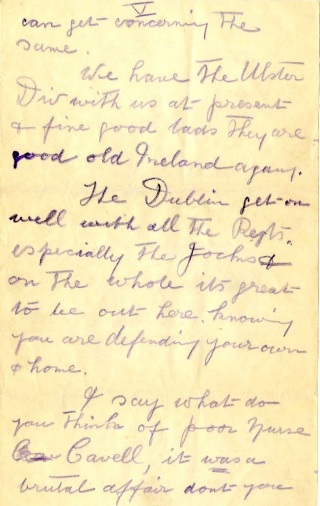 V
can get concerning the
same.
We have the Ulster
Div with us at present
& fine good lads they are
good old Ireland again.
The Dublin get on
well with all the Regts.
especially the Jocks &
on the whole its great
to be out here. knowing
you are defending your own
& home.
I say what do
you think of poor Nurse
Cavell, it was a
brutal affair dont you